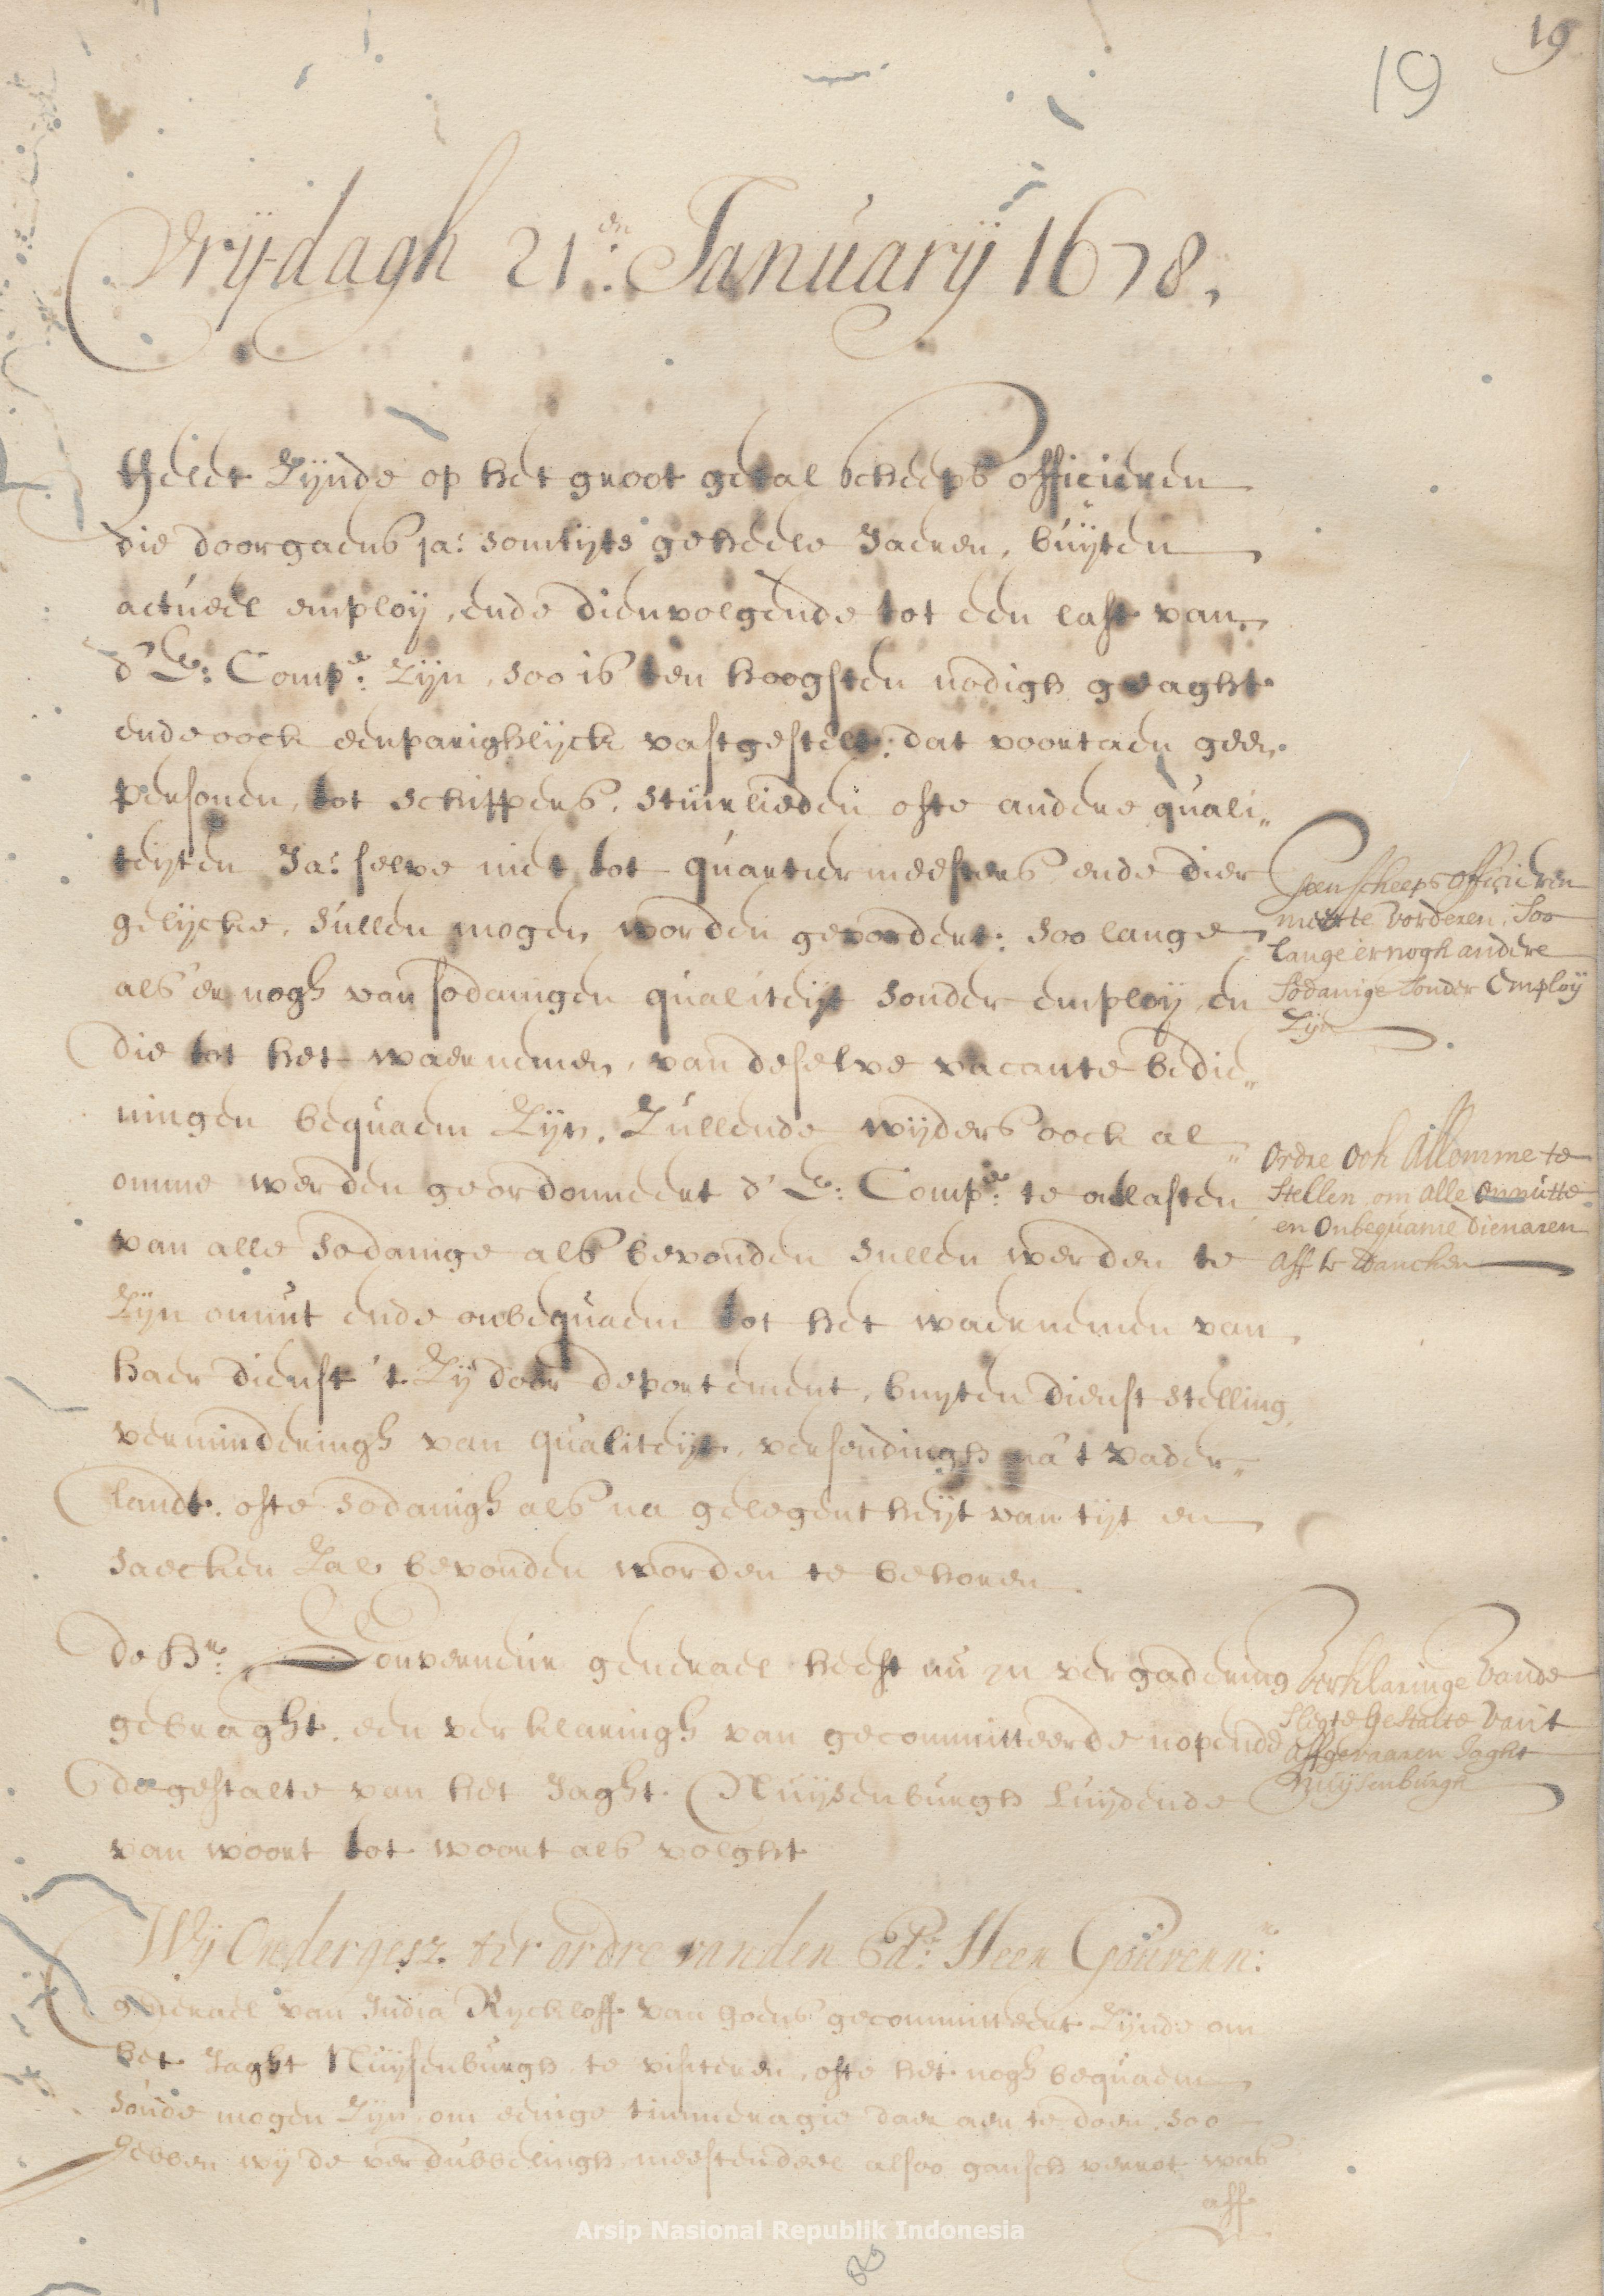 19
19
Vrijdagh 21:en Januarij 1678,
Gelet Zijnde op het groot getal scheeps officieren
die doorgaens ja: somtijts geheele Jaeren, buijten
actueel employ, ende dienvolgende tot een last van
d' E: Comp:e Zijn, soo is ten hooghsten nodigh geaght
ende oock eenparighlijck vastgestelt: dat voortaen geen
persoonen, tot schippers, stuurlieden ofte andere quali„
teijten Ja: selve niet tot quartiermeesters ende dier
gelijcke, sullen mogen worden gevordert: soo lange
als'er nogh van sodanigen qualiteijt sonder employ en
die tot het waernemen, van deselve vacante bedie„
ningen bequaem Zijn, Zullende wijders oock al„
omme werden geordonneert d' E: Comp:e te ontlasten
van alle sodanige als bevonden sullen werden te
Zijn onnut ende onbequaem tot het waernemen van
haer dienst 't Zij door deportement, buyten dienst stelling,
verminderingh van qualiteijt, versendingh na 't vader„
landt, ofte sodanigh als na gelegentheijt van tijt en
saecken Zal bevonden worden te behoren.
Geen scheeps officieren
meer te vorderen, soo
lange er nogh andere
sodanige sonder Employ
Zijn
Ordre ook Allomme te
stellen om alle onnutte
en onbequame dienaren
aff te dancken
de H:r Gouverneur generael heeft nu in vergadering
gebraght, een verklaringh van gecommitteerde nopende
de gestalte van het Jaght Nuijsenburgh Luijdende
van woort tot woort als volght
Verklaringe van de
slegte gestalte van't
affgevaaren Jaght
Nuijsenburgh
Wij Ondergesz. ter ordre van den Ed:n Heer Gouvern:r
generael van India Ryckloff van Goens gecommitteert Zijnde om
het Jaght Nuijsenburgh te visiteren, ofte het nogh bequaem
soude mogen Zijn, om eenige timmeragie daer aen te doen, soo
hebben wij de verdubbelingh meestendeel alsoo gansch verrot was
aff
Arsip Nasional Republik Indonesia